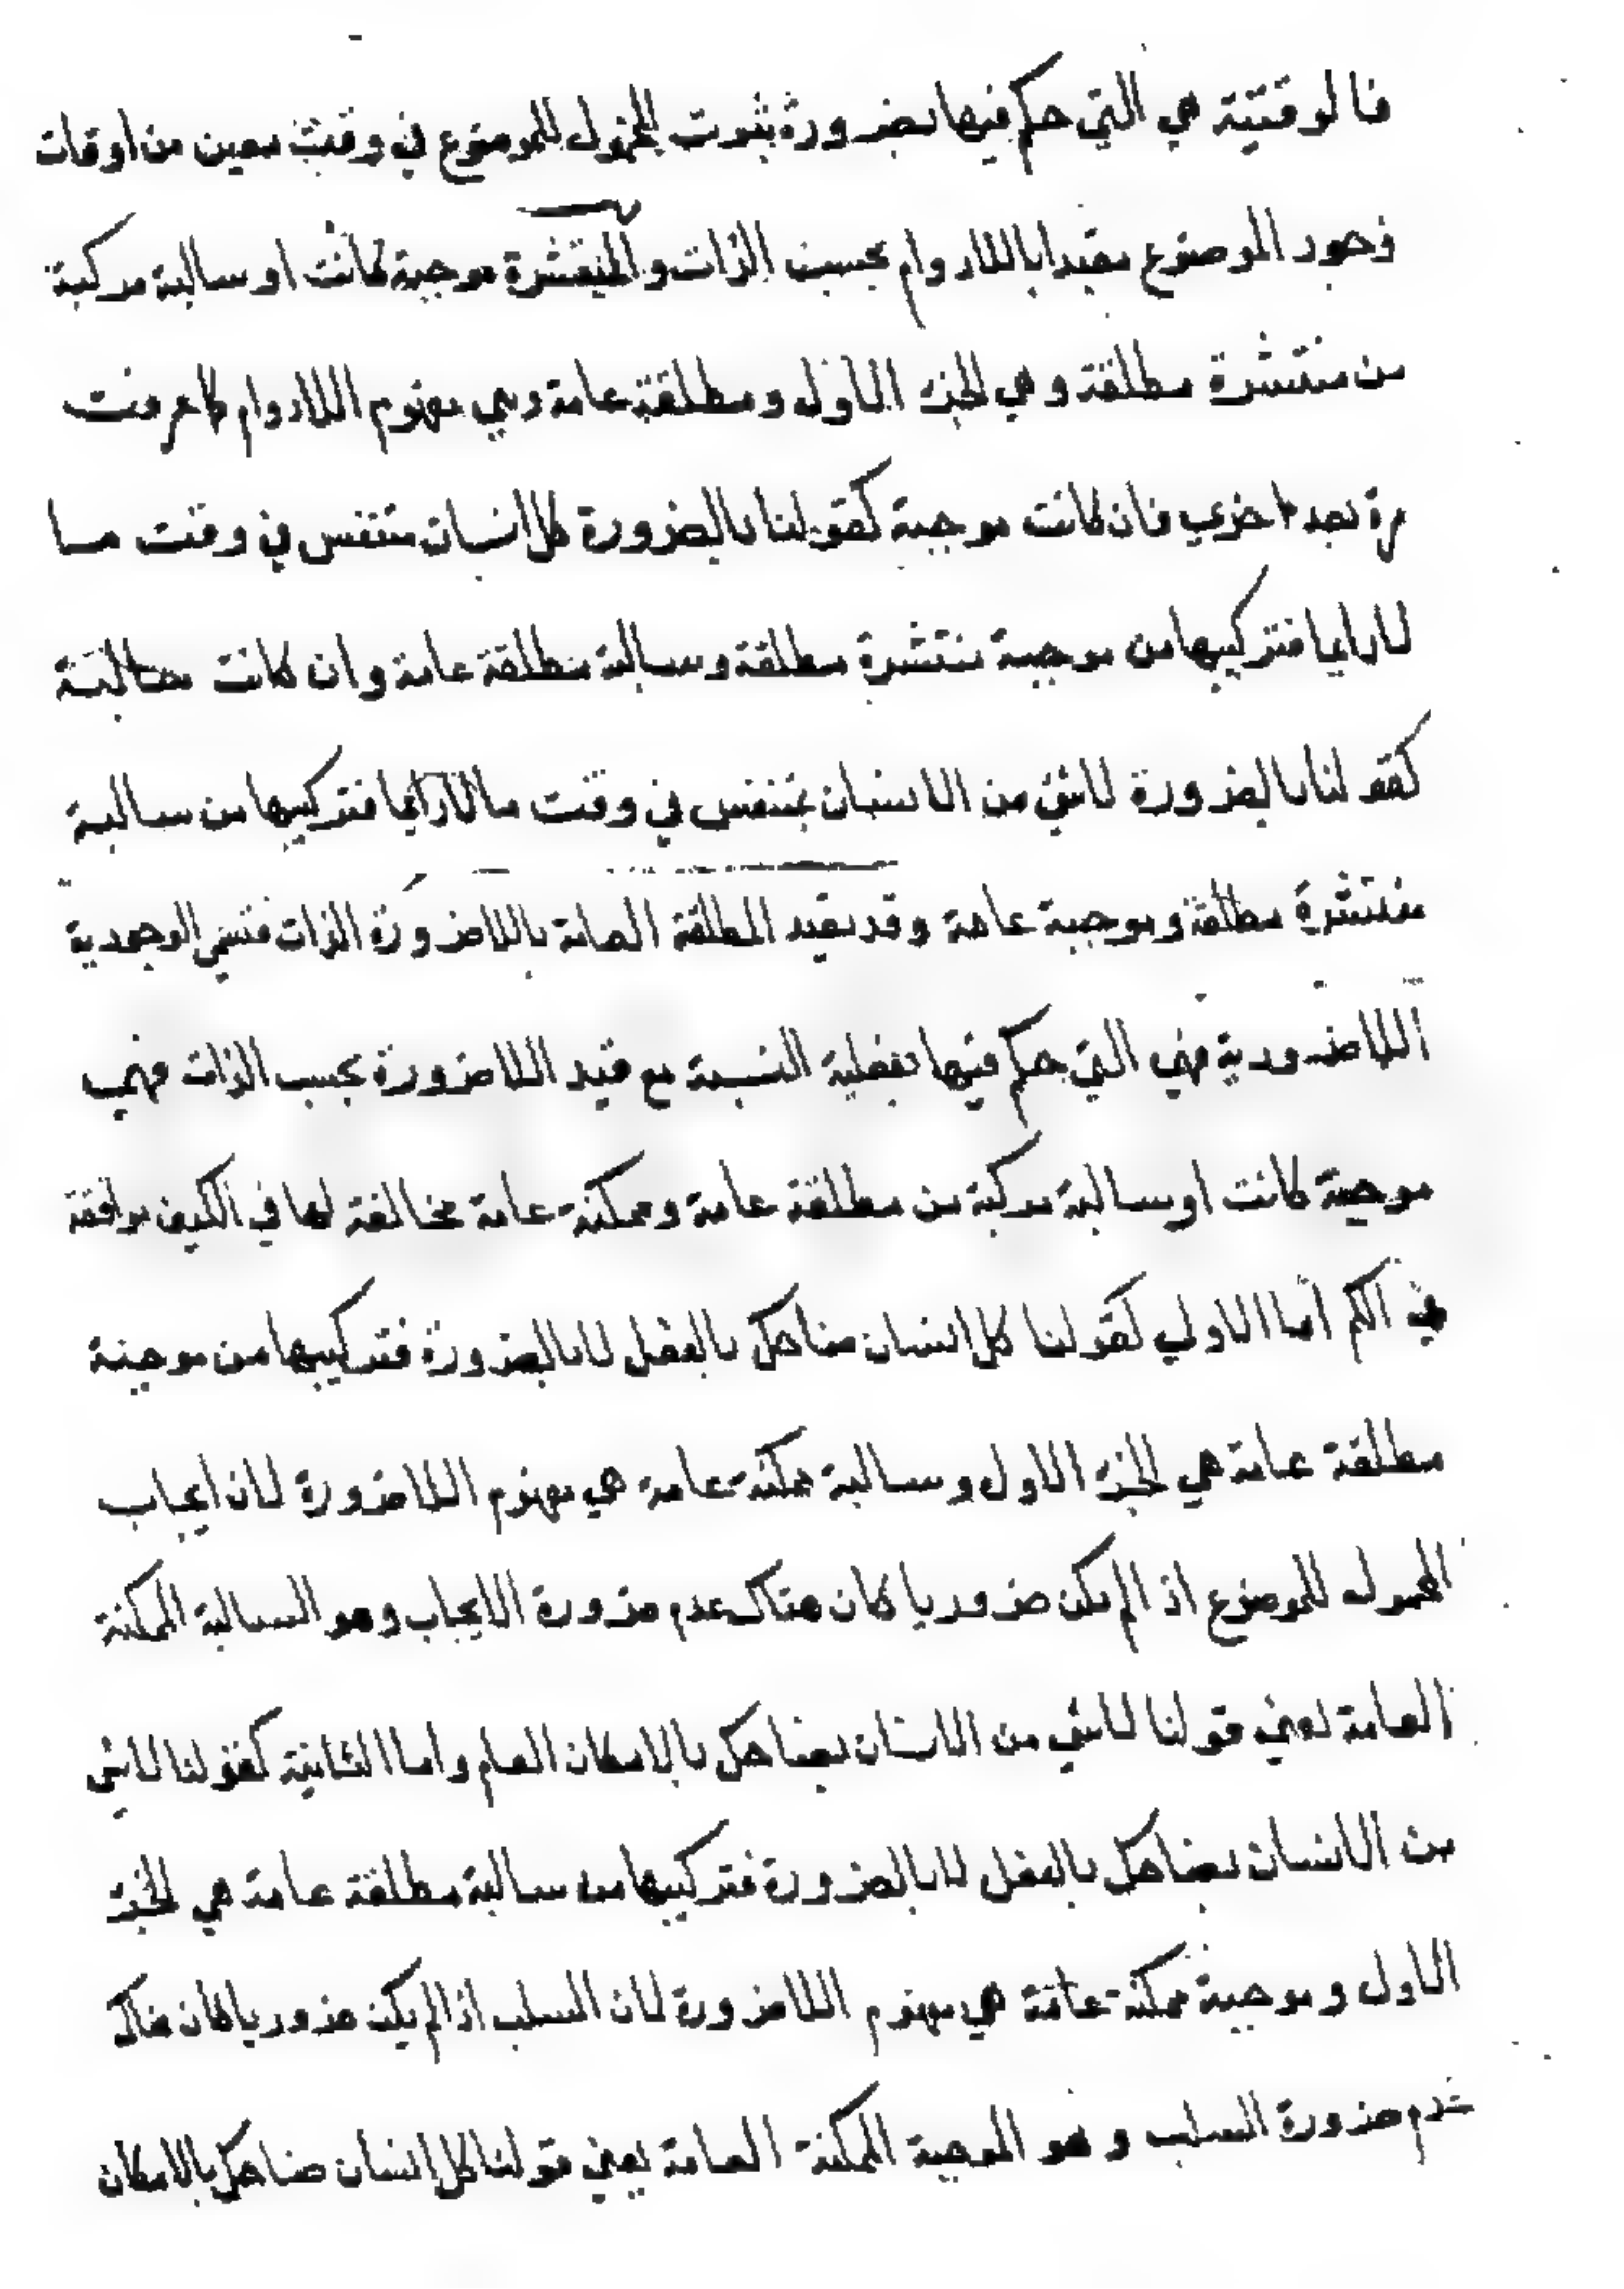 فالوقتية هي التي حكم فيها بضرورة ثبوت المحمول للموضوع في وقت معين من اوقات
وجود الموضوع مقيدا باللادوام بحسب الذات والمنتشرة موجبة كانت او سالبة مركبة
من منتشرة مطلقة وهي الجزء الاول ومطلقة عامة وهي مفهوم اللادوام كما عرفت
مرة بعد اخرى فان كانت موجبة كقولنا بالضرورة كل انسان متنفس في وقت ما
لا دايما فتركيبها من موجبة منتشرة مطلقة وسالبة مطلقة عامة وان كانت سالبة
كقولنا بالضرورة لا شئ من الانسان بمتنفس في وقت ما لا دايما فتركيبها من سالبة
منتشرة مطلقة وموجبة عامة وقد تقيد المطلقة العامة باللاضرورة الذات فتسمى الوجودية
اللاضرورية فهي التي حكم فيها بفعلية النسبة مع قيد اللاضرورة بحسب الذات فهي
موجبة كانت او سالبة مركبة من مطلقة عامة وممكنة عامة مخالفة لها في الكيف موافقة
في الكم اما الاولى كقولنا كل انسان ضاحك بالفعل لا بالضرورة فتركيبها من موجبة
مطلقة عامة هي الجزء الاول وسالبة ممكنة عامة هي مفهوم اللاضرورة لان ايجاب
المحمول للموضوع اذا لم يكن ضروريا كان هناك عدم ضرورة الايجاب وهو السالبة الممكنة
العامة يعني قولنا لا شي من الانسان بضاحك بالامكان العام واما الثانية كقولنا لا شي
من الانسان بضاحك بالفعل لا بالضرورة فتركيبها من سالبة مطلقة عامة هي الجزء
الاول وموجبة ممكنة عامة هي مفهوم اللاضرورة لان السلب اذا لم يكن ضروريا كان هناك
عدم ضرورة السلب وهو الموجبة الممكنة العامة يعني قولنا كل انسان ضاحك بالامكان